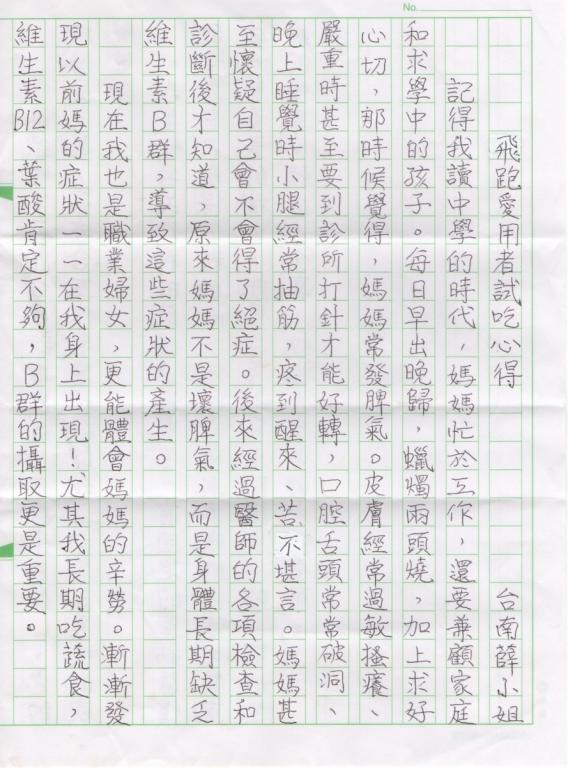 No.
飛跑愛用者試吃心得　　台南薛小姐
記得我讀中學的時代，媽媽忙於工作，還要兼顧家庭
和求學中的孩子。每日早出晚歸，蠟燭兩頭燒，加上求好
心切，那時候覺得，媽媽常發脾氣。皮膚經常過敏搔癢、
嚴重時甚至要到診所打針才能好轉，口腔舌頭常常破洞、
晚上睡覺時小腿經常抽筋，疼到醒來、苦不堪言。媽媽甚
至懷疑自己會不會得了絕症。後來經過醫師的各項檢查和
診斷後才知道，原來媽媽不是壞脾氣，而是身體長期缺乏
維生素B群，導致這些症狀的產生。
現在我也是職業婦女，更能體會媽媽的辛勞。漸漸發
現以前媽的症狀一一在我身上出現！尤其我長期吃蔬食，
維生素B12、葉酸肯定不夠，B群的攝取更是重要。